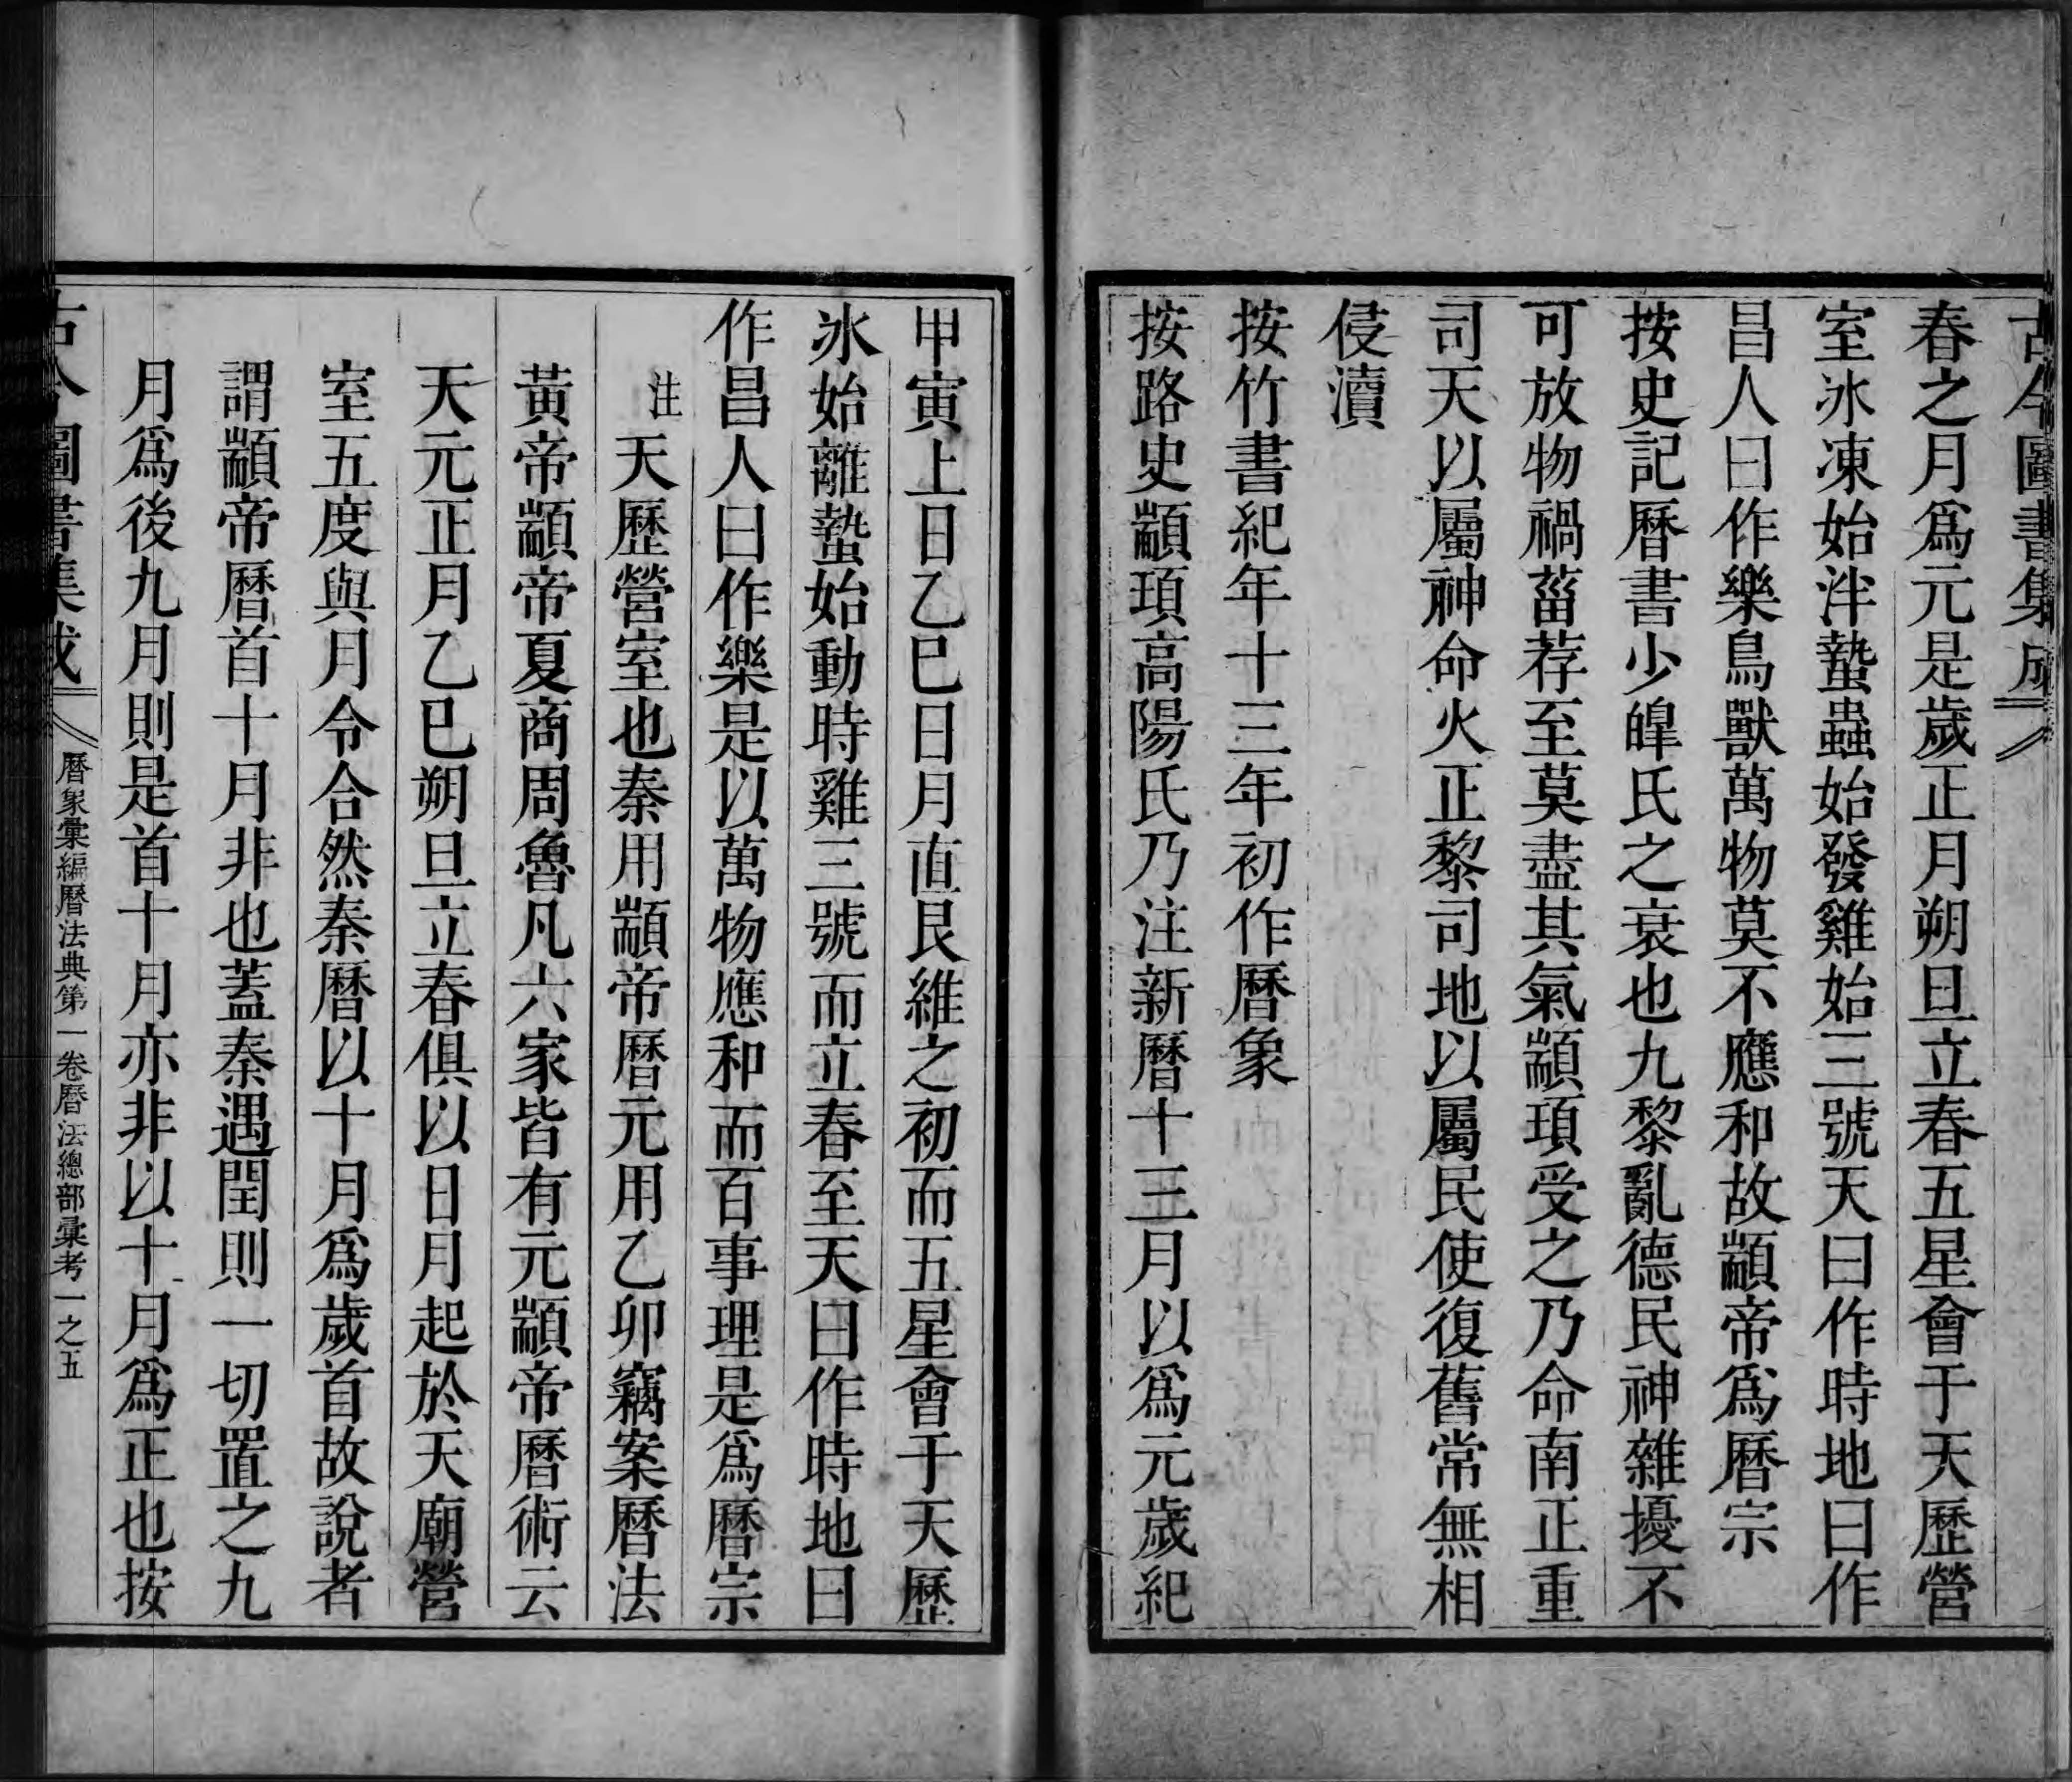 古今圖書集成
春之月爲元是歲正月朔旦立春五星會于天歷營
室冰凍始泮蟄蟲始發雞始三號天曰作時地曰作
昌人曰作樂鳥獸萬物莫不應和故顓帝爲曆宗
按史記曆書少皞氏之衰也九黎亂德民神雜擾不
可放物禍菑荐至莫盡其氣顓頊受之乃命南正重
司天以屬神命火正黎司地以屬民使復舊常無相
侵瀆
按竹書紀年十三年初作曆象
按路史顓頊高陽氏乃注新曆十三月以爲元歲紀
甲寅上日乙巳日月直艮維之初而五星會于天歷
氷始離蟄始動時雞三號而立春至天曰作時地曰
作昌人曰作樂是以萬物應和而百事理是爲曆宗
注天歷營室也秦用顓帝曆元用乙卯竊案曆法
黃帝顓帝夏商周魯凡六家皆有元顓帝曆術云
天元正月乙巳朔旦立春俱以日月起於天廟營
室五度與月令合然秦曆以十月爲歲首故說者
謂顓帝曆首十月非也蓋秦遇閏則一切置之九
月爲後九月則是首十月亦非以十月爲正也按
古今圖書集成
曆象彙編曆法典第一卷曆法總部彙考一之五